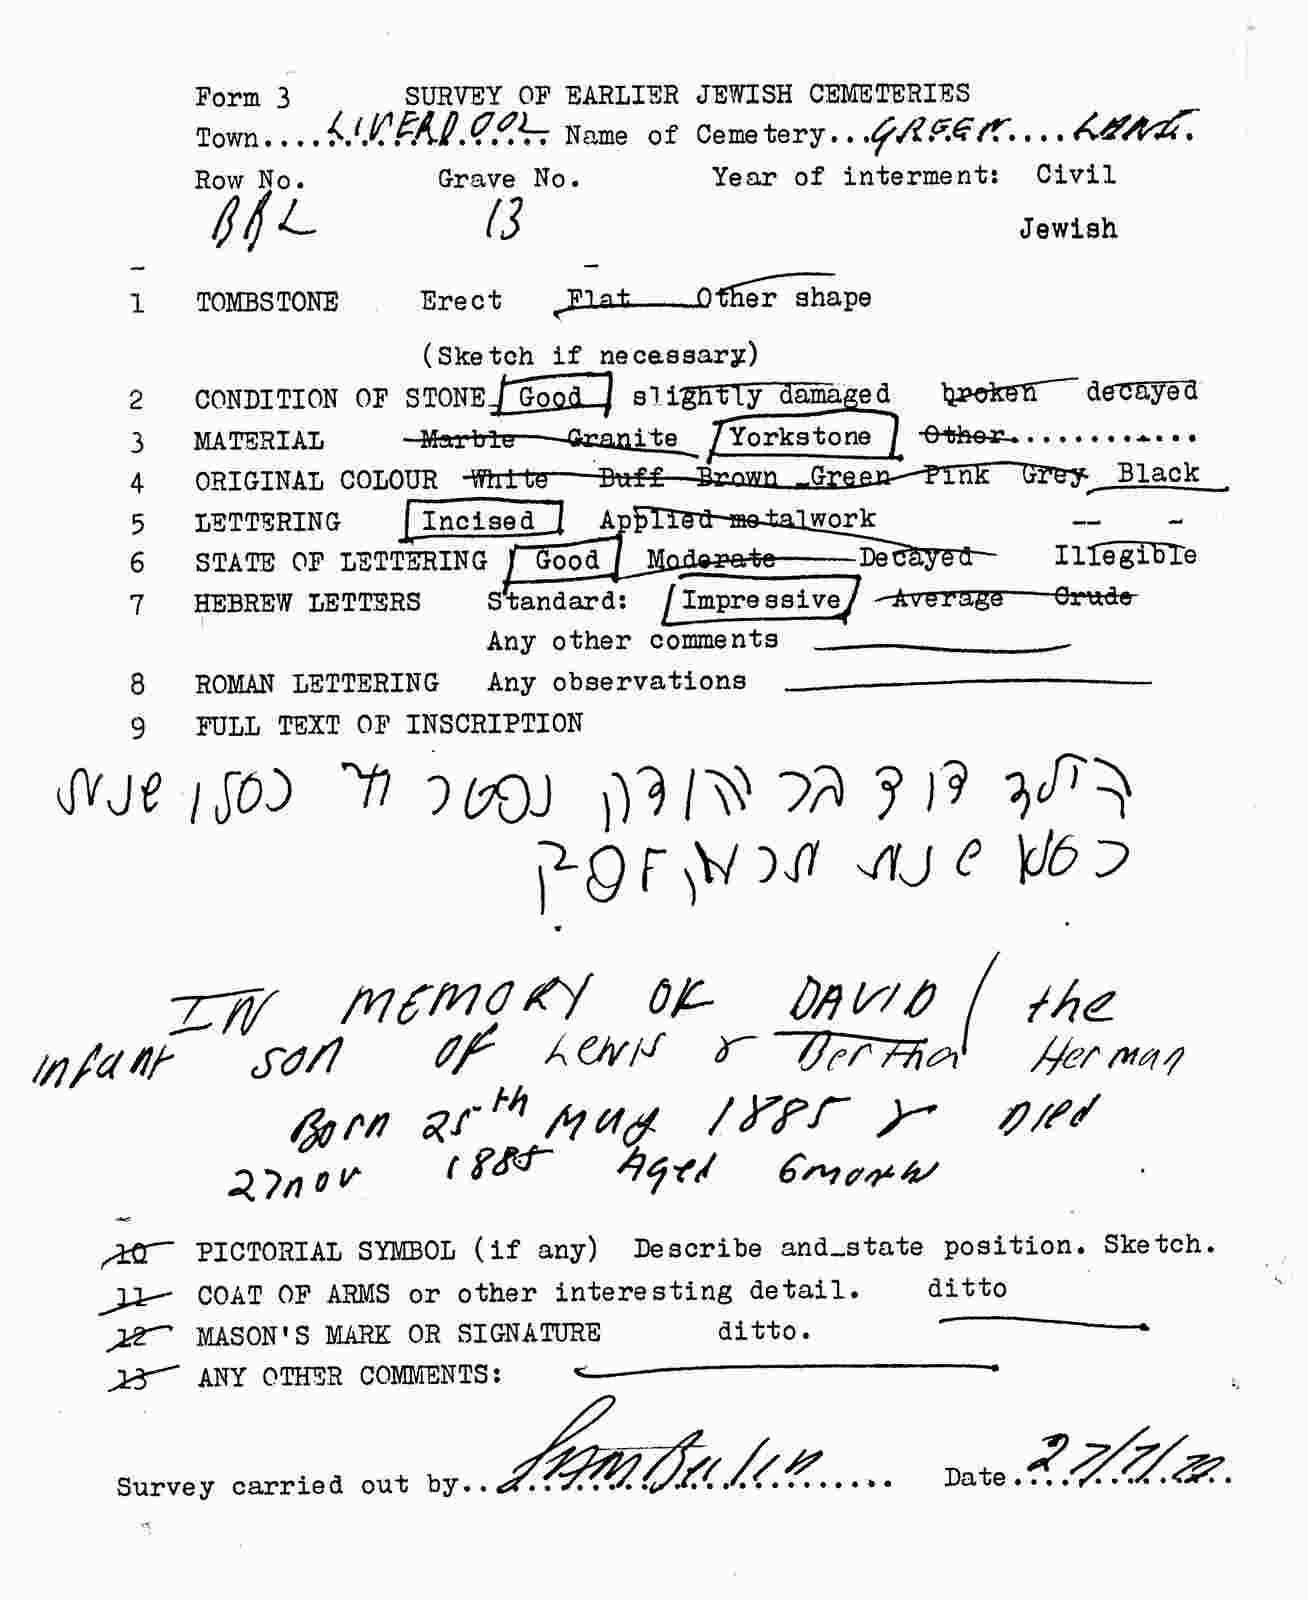 Form 3 SURVEY OF EARLIER JEWISH CEMETERIES
Town....LIVERPOOL Name of Cemetery...GREEN....LANE.
Row No. Grave No. Year of interment: Civil
BRL 13 Jewish
1 TOMBSTONE Erect Flat Other shape
(Sketch if necessary)
2 CONDITION OF STONE Good slightly damaged broken decayed
3 MATERIAL Marble Granite Yorkstone Other............
4 ORIGINAL COLOUR White Buff Brown Green Pink Grey Black
5 LETTERING Incised Applied metalwork
6 STATE OF LETTERING Good Moderate Decayed Illegible
7 HEBREW LETTERS Standard: Impressive Average Crude
Any other comments
8 ROMAN LETTERING Any observations
9 FULL TEXT OF INSCRIPTION
הילד דוד בר נפטר כסלו שנת
שנת
IN MEMORY OF DAVID / the
infant son of Lewis & Bertha Herman
Born 25th May 1885 & Died
27 nov 1885 Aged 6 months
10 PICTORIAL SYMBOL (if any) Describe and state position. Sketch.
11 COAT OF ARMS or other interesting detail. ditto
12 MASON'S MARK OR SIGNATURE ditto.
13 ANY OTHER COMMENTS:
Survey carried out by.. Date 27/7/